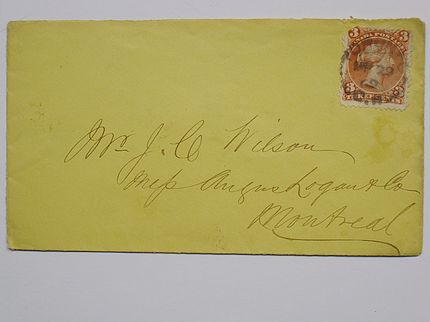 3 CANADA POSTAGE 3
3 THREE CENTS 3
Mr. J. C Wilson
Mess Angus Logan & Co
Montreal